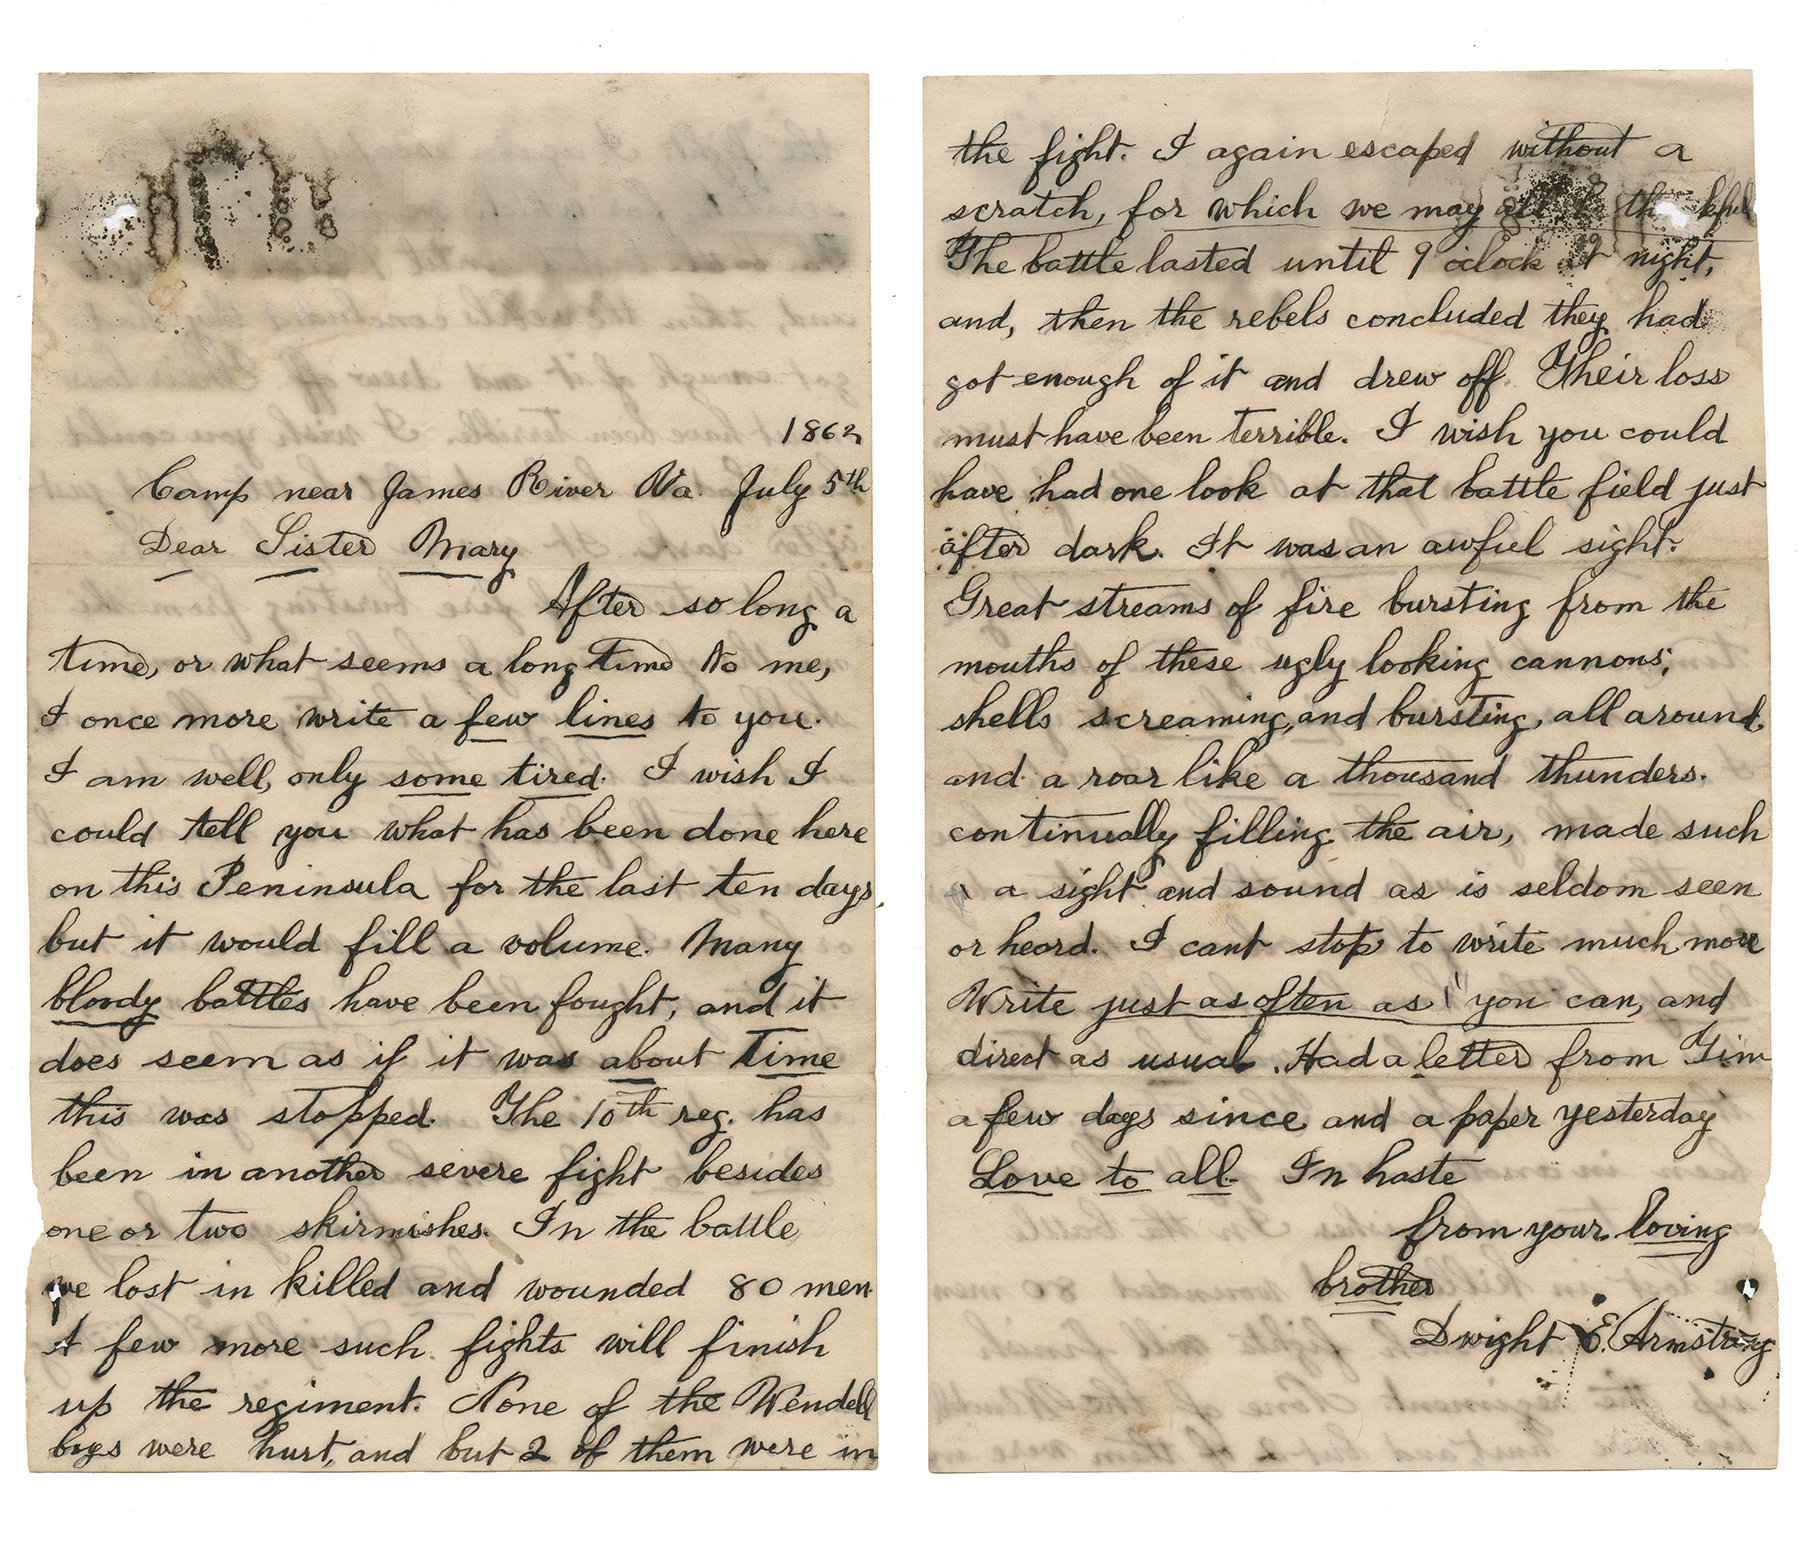 1862
Camp near James River Va. July 5th
Dear Sister Mary
After so long a
time, or what seems a long time to me,
I once more write a few lines to you.
I am well, only some tired. I wish I
could tell you what has been done here
on this Peninsula for the last ten days,
but it would fill a volume. Many
bloody battles have been fought, and it
does seem as if it was about time
this was stopped. The 10th reg. has
been in another severe fight besides
one or two skirmishes. In the battle
we lost in killed and wounded 80 men
A few more such fights will finish
up the regiment. None of the Wendell
boys were hurt, and but 2 of them were in
the fight. I again escaped without a
scratch, for which we may all be thankful
The battle lasted until 9 oclock at night,
and, then the rebels concluded they had
got enough of it and drew off. Their loss
must have been terrible. I wish you could
have had one look at that battle field just
after dark. It was an awful sight.
Great streams of fire bursting from the
mouths of these ugly looking cannons;
shells screaming, and bursting, all around,
and a roar like a thousand thunders.
continually filling the air, made such
a sight and sound as is seldom seen
or heard. I cant stop to write much more
Write just as often as you can, and
direct as usual. Had a letter from Tim
a few days since and a paper yesterday
Love to all. In haste
from your loving
brother
Dwight E. Armstrong